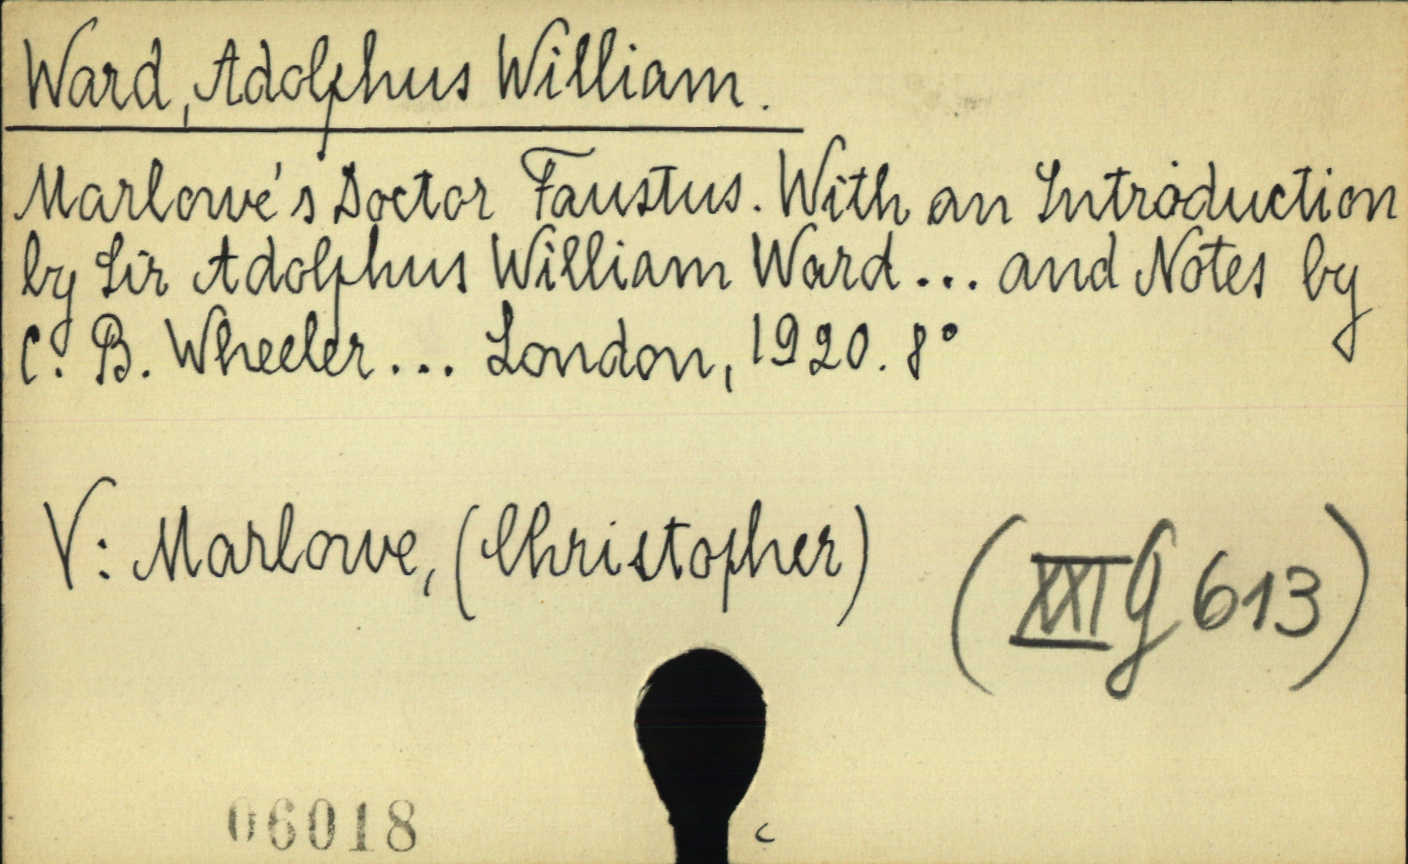 Ward, Adolphus William.
Marlowe's Doctor Faustus. With an Introduction
by Sir Adolphus William Ward... and Notes by
C. B. Wheeler... London, 1920. 8°
V: Marlowe, (Christopher)
(XXI G 613)
06018
c